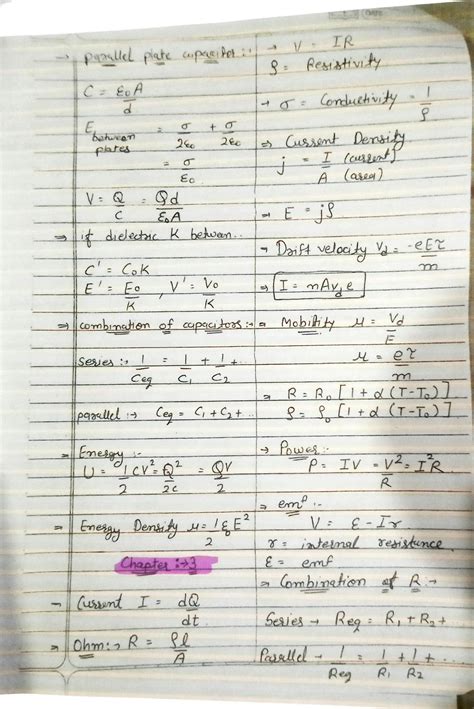 → parallel plate capacitor :-
C = ε₀A / d
E between plates = σ/2ε₀ + σ/2ε₀
= σ/ε₀
V = Q/C = Qd/ε₀A
⇒ if dielectric K between..
C' = C₀K
E' = E₀/K , V' = V₀/K
⇒ combination of capacitors :-
Series :- 1/Ceq = 1/C₁ + 1/C₂ + ..
parallel :- Ceq = C₁ + C₂ + ..
⇒ Energy :-
U = 1/2 CV² = Q²/2C = QV/2
⇒ Energy Density u = 1/2 ε₀E²
Chapter :→ 3
→ Current I = dQ/dt
⇒ Ohm :→ R = ρl/A
→ V = IR
ρ = Resistivity
→ σ = Conductivity = 1/ρ
⇒ Current Density
j = I/A (current) (area)
→ E = jρ
→ Drift velocity Vd = -eEτ/m
⇒ I = nAVde
⇒ Mobility μ = Vd/E
μ = eτ/m
⇒ R = R₀ [1 + α (T-T₀)]
ρ = ρ₀ [1 + α (T-T₀)]
→ Power :-
P = IV = V²/R = I²R
⇒ emf :-
V = ε - Ir
r = internal resistance
ε = emf
⇒ Combination of R :-
Series → Req = R₁ + R₂ +
Parallel → 1/Req = 1/R₁ + 1/R₂ + ..